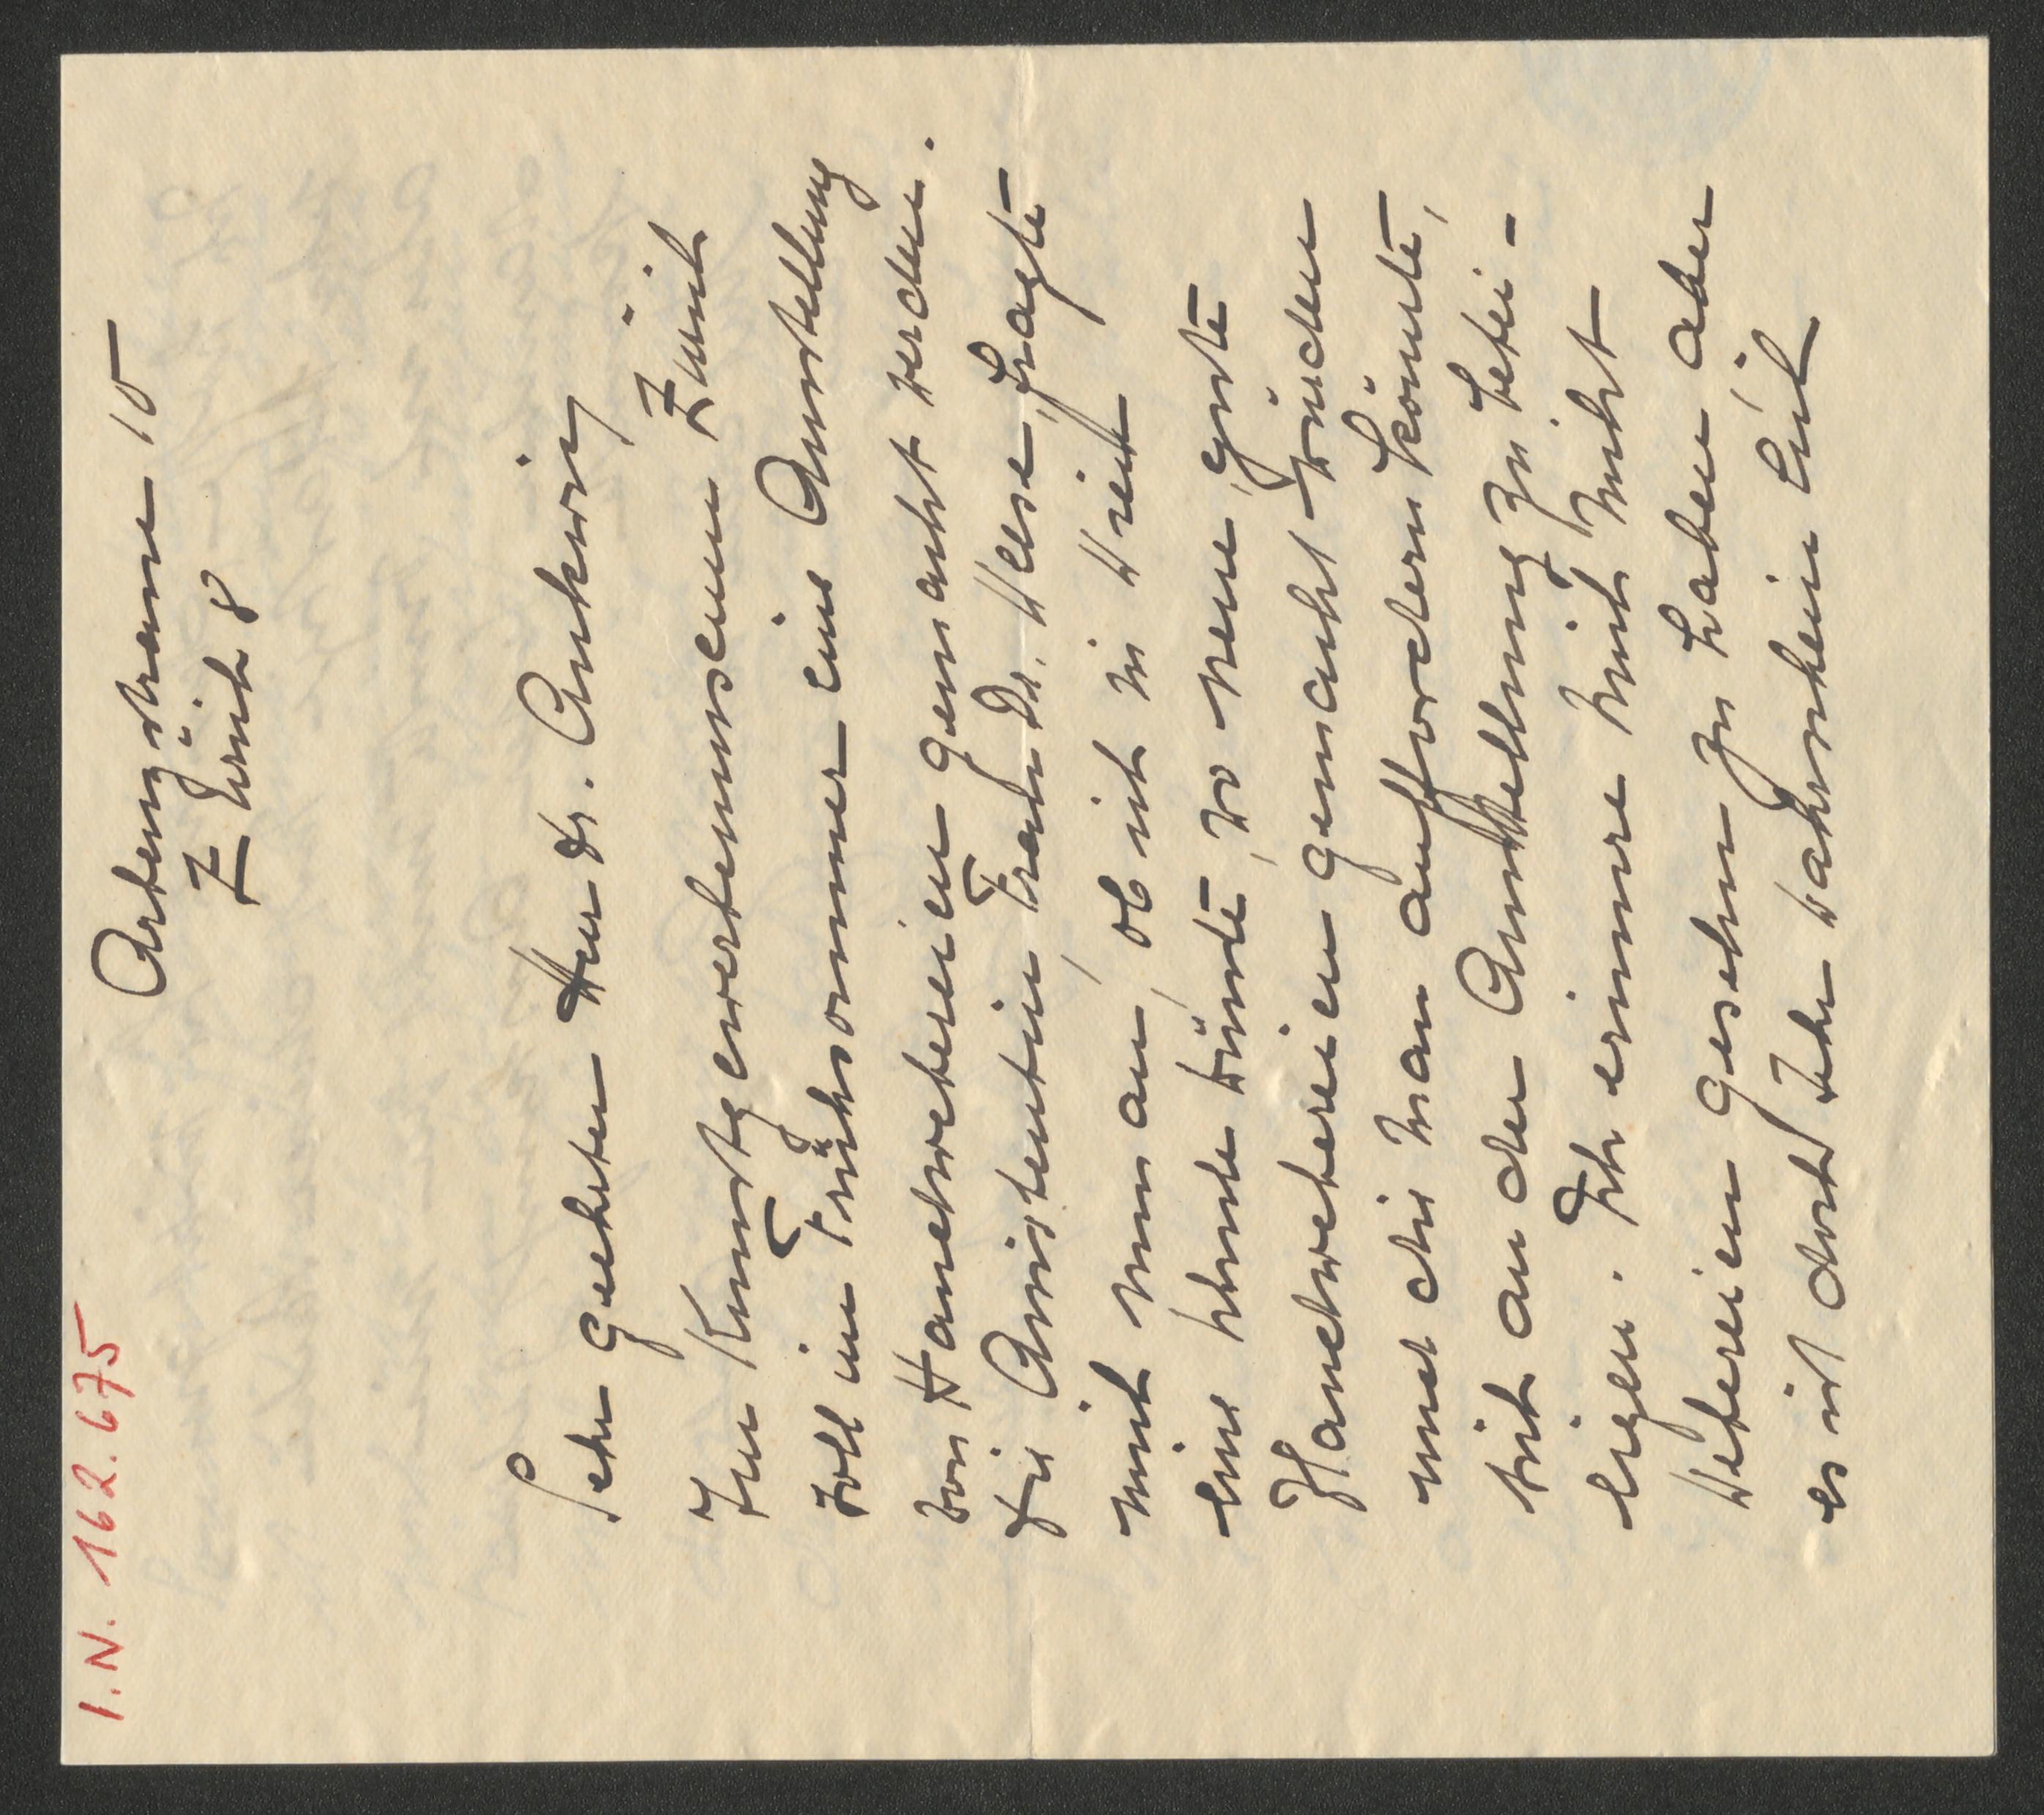 I.N. 162.675
Arbenzstrasse 10
Zürich 8
Sehr geehrter Herr Dr. Ankwicz
Im Kunstgewerbemuseum Zürich
soll im Frühsommer eine Ausstellung
von Handwebereien gemacht werden.
Die Assistentin, Frau Dr. Weese, fragte
mich nun an, ob ich in Wien
eine Stelle wüsste, wo neue, gute
Handwebereien gemacht würden
und die man auffordern könnte,
sich an der Ausstellung zu betei-
ligen. Ich erinnere mich nicht
Webereien gesehen zu haben, aber
es ist doch sehr wahrscheinlich